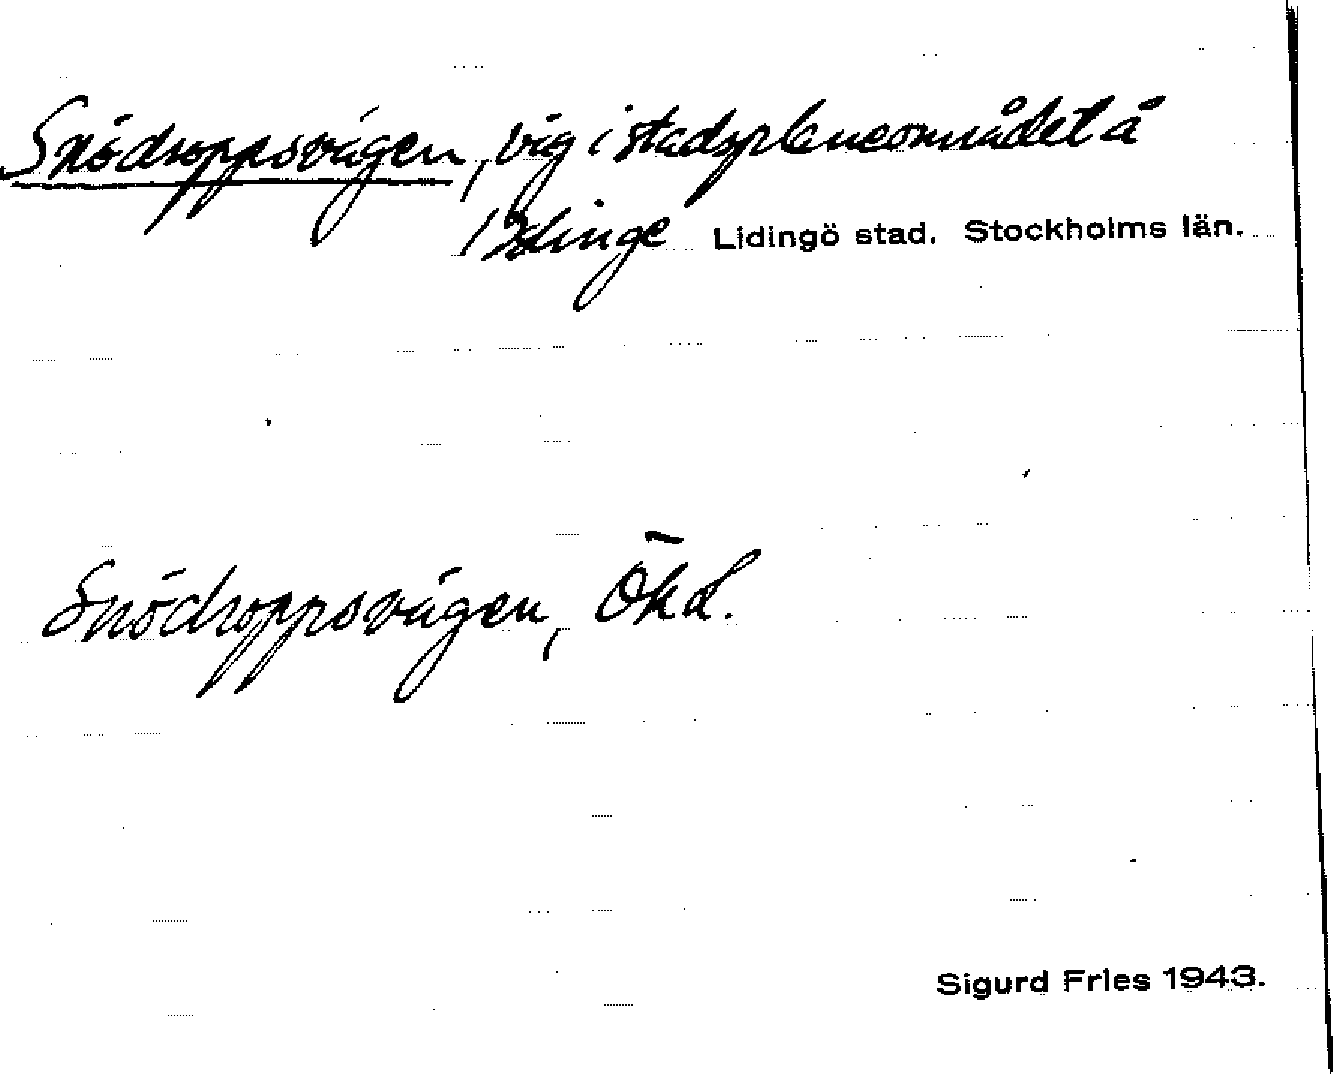 Snödroppsvägen, väg i stadsplaneområdet å
Lidingö stad. Stockholms län.
Snödroppsvägen, ÖkL.
Sigurd Fries 1943.